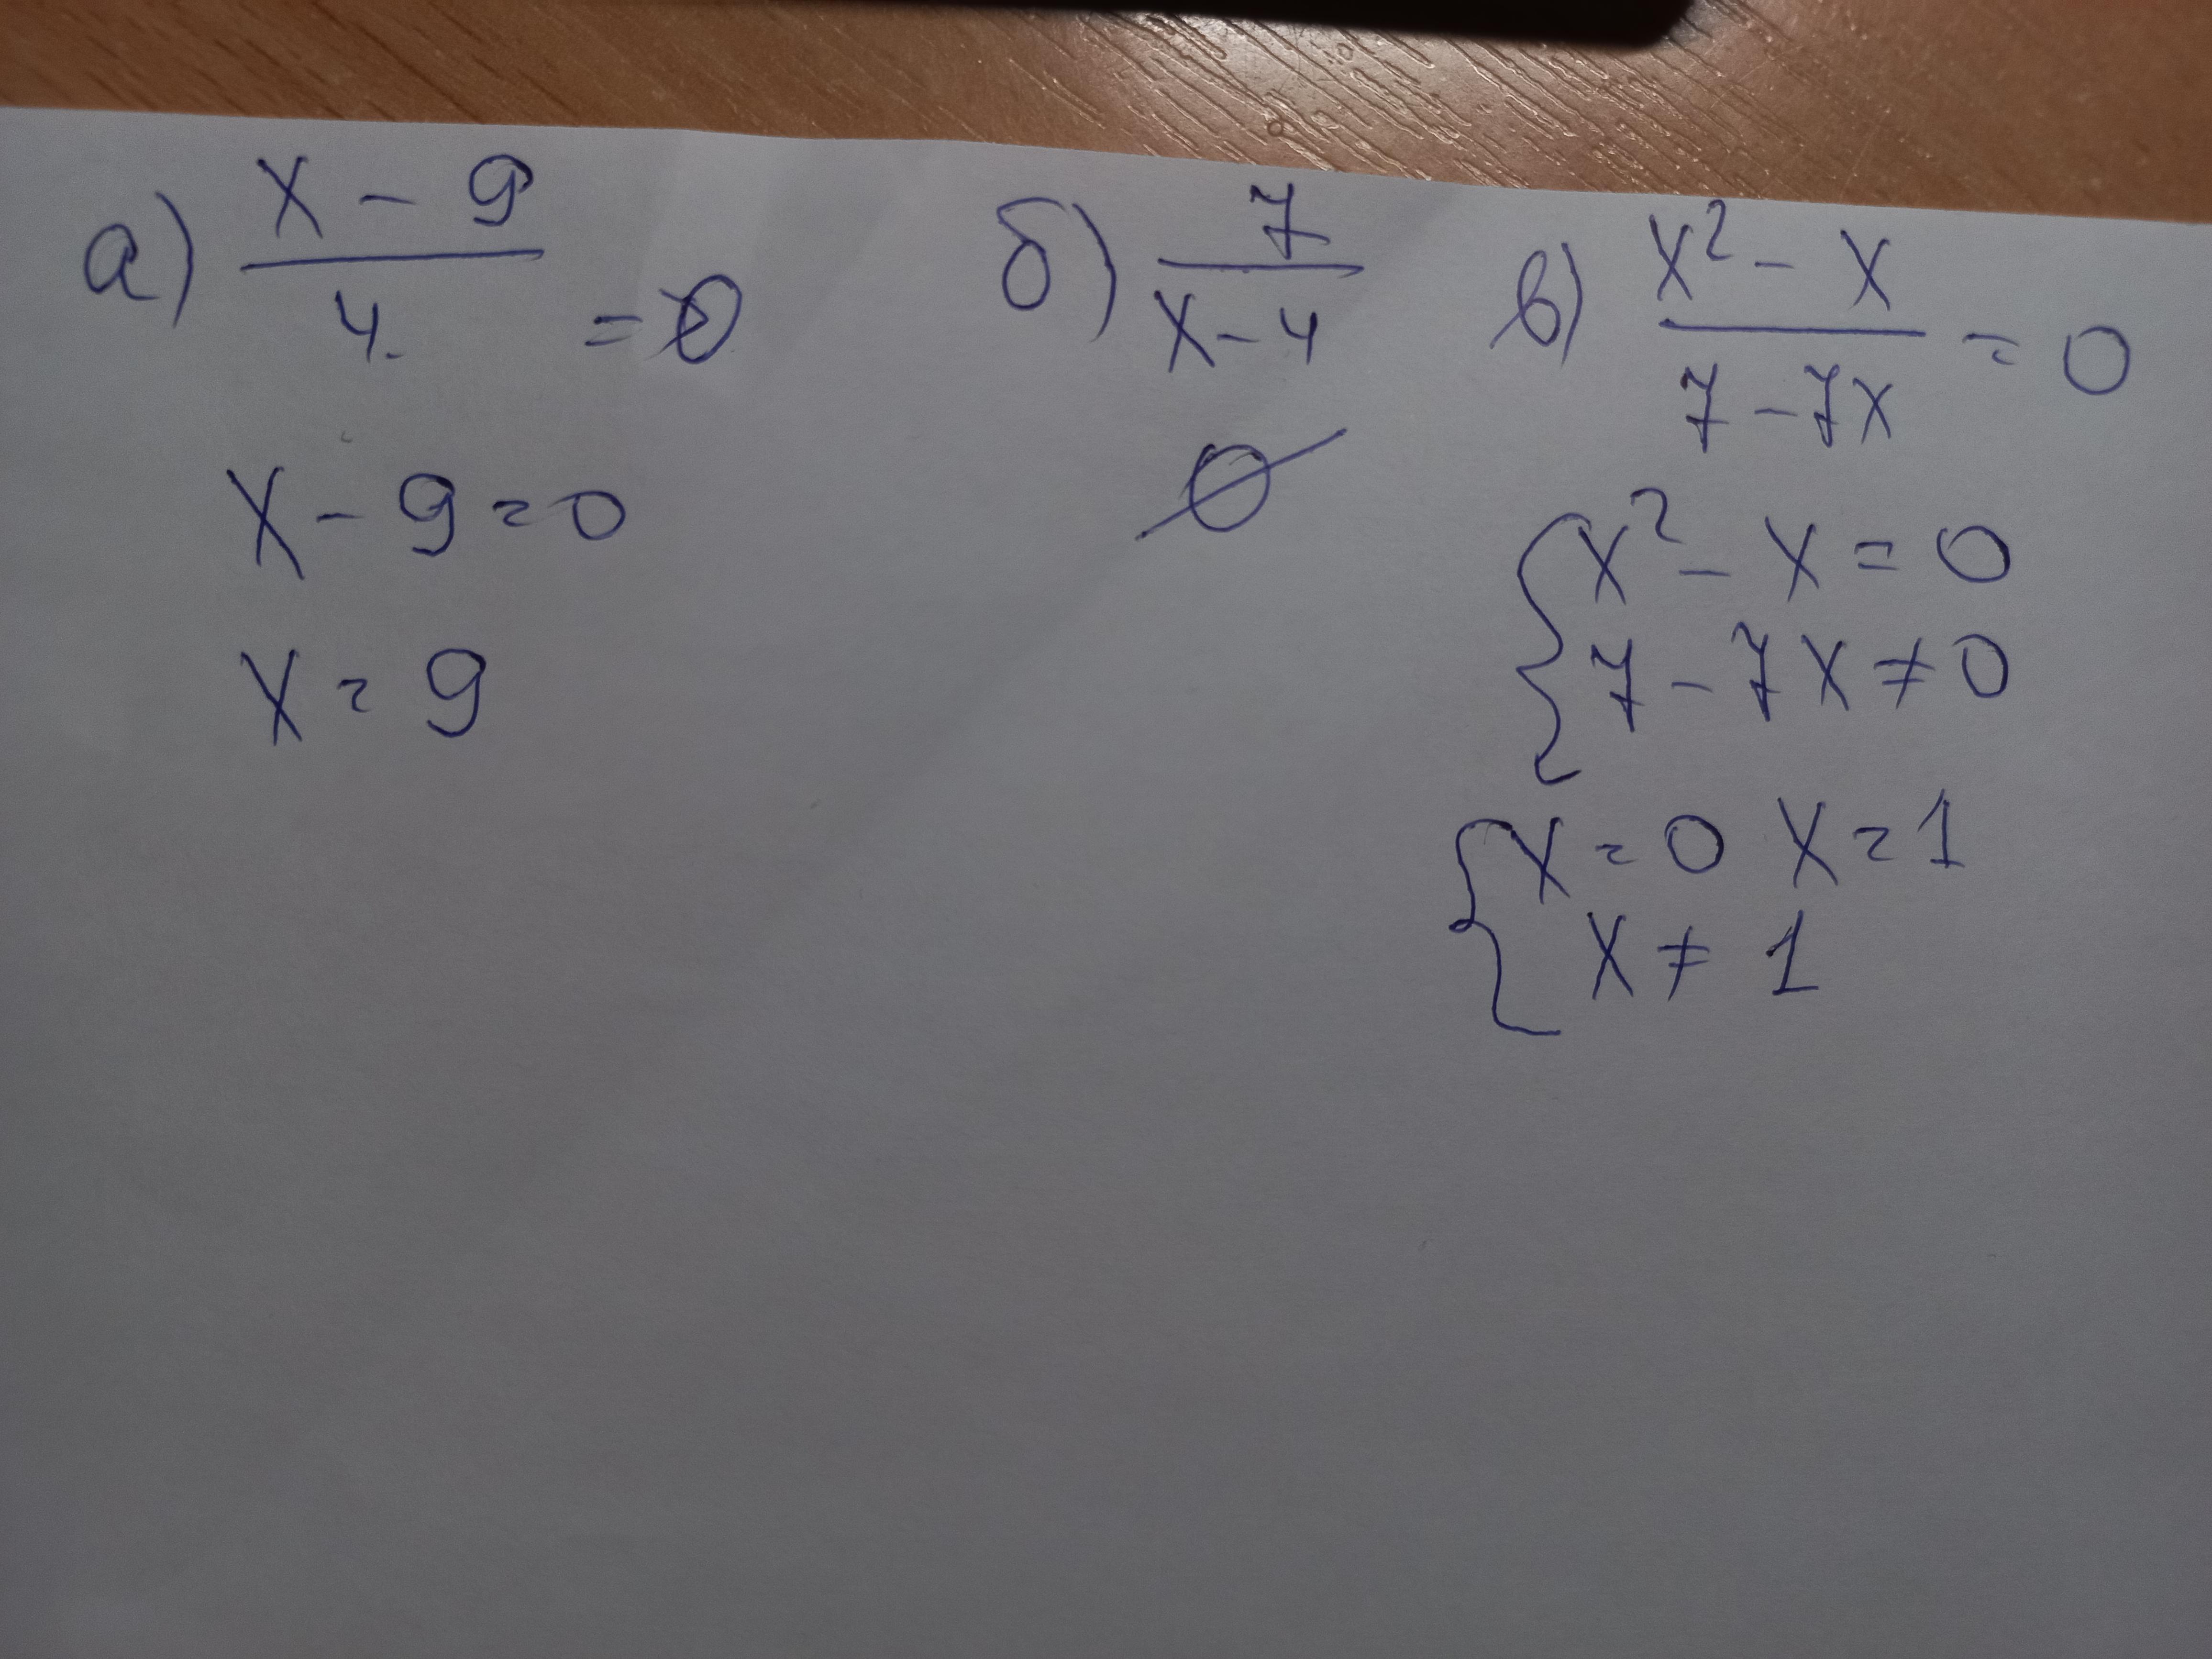 а) x - 9 / 4 = 0
x - 9 = 0
x = 9
б) 7 / x - 4
∅
в) x² - x / 7 - 7x = 0
{ x² - x = 0
7 - 7x ≠ 0
{ x = 0 x = 1
x ≠ 1